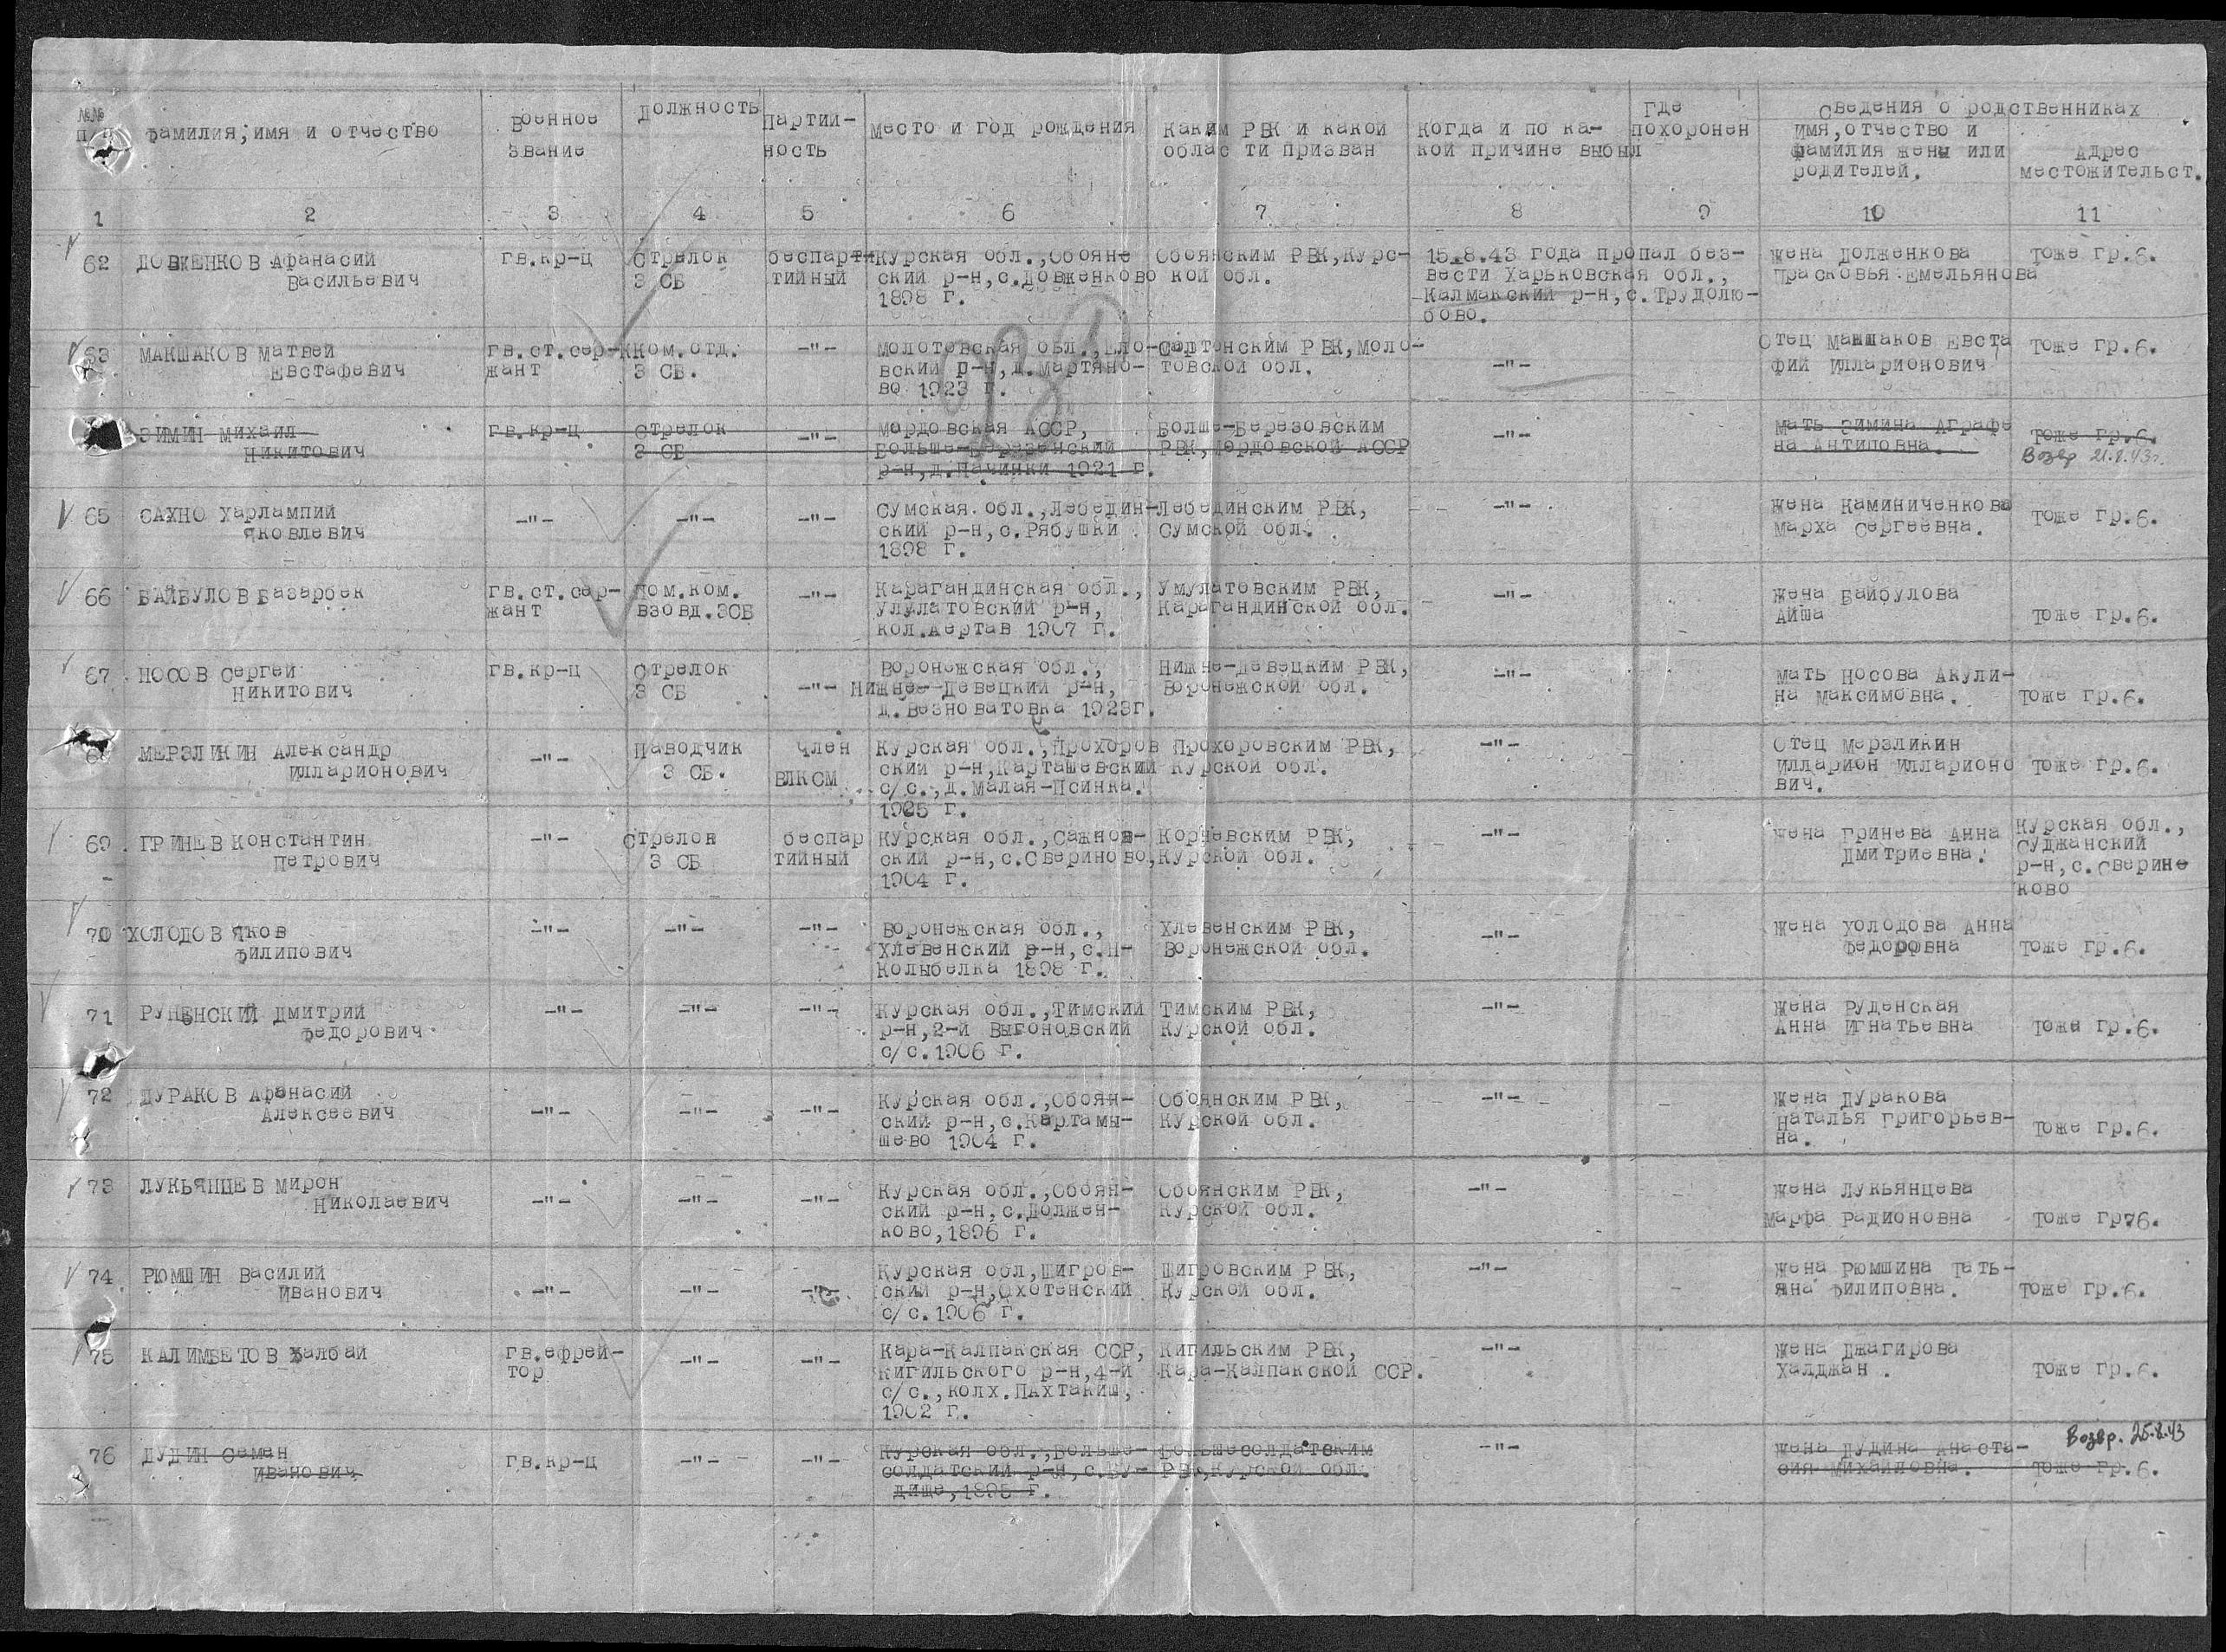 №№ п/п
фамилия, имя и отчество
Военное звание
Должность
Партий-
ность
Место и год рождения
Каким РВК и какой
области призван
Когда и по ка-
кой причине выбыл
Где
похоронен
Сведения о родственниках
Имя, отчество и
фамилия жены или
родителей.
Адрес
местожительст.
1 2 3 4 5 6 7 8 9 10 11
62 ДОВЖЕНКОВ Афанасий
Васильевич
гв.кр-ц
Стрелок
3 СБ
беспарти
тийный
Курская обл., Обояне
ский р-н, с.Довженково
1898 г.
Обоянским РВК, Курс-
кой обл.
15.8.43 года пропал без-
вести Харьковская обл.,
Калмакский р-н, с.Трудолю-
бово.
Жена Долженкова
Прасковья Емельянова
Тоже гр.6.
63 МАКШАКОВ Матвей
Евстафевич
гв.ст.сер-
жант
Ком.отд.
3 СБ.
-"-
Молотовская обл.,
вский р-н, д.Мартяно-
во 1923 г.
РВК, Моло-
товской обл.
-"-
Отец Макшаков Евста
фий Илларионович
Тоже гр.6.
ЗИМИН Михаил
Никитович
гв.кр-ц
Стрелок
3 СБ
-"-
Мордовская АССР,
Больше-Березенский
р-н, д.Пачинки 1921 г.
Больше-Березовским
РВК, Мордовской АССР
-"-
Мать Зимина Аграфе
на Антиповна.
Тоже гр.6.
Возвр 21.8.43г.
65 САХНО Харлампий
Яковлевич
-"-
-"-
-"-
Сумская обл., Лебедин-
ский р-н, с.Рябушки
1898 г.
Лебединским РВК,
Сумской обл.
-"-
Жена Каминиченкова
Марха Сергеевна.
Тоже гр.6.
66 БАЙБУЛОВ Базарбек
гв.ст.сер-
жант
Пом.ком.
взовд.3СБ
-"-
Карагандинская обл.,
Улулатовский р-н,
кол.Аертав 1907 г.
Умулатовским РВК,
Карагандинской обл.
-"-
Жена Байбулова
Айша
Тоже гр.6.
67 НОСОВ Сергей
Никитович
гв.кр-ц
Стрелок
3 СБ
-"-
Воронежская обл.,
Нижнее-Девецкий р-н,
д.Везноватовка 1923г.
Нижне-Девецким РВК,
Воронежской обл.
-"-
Мать Носова Акули-
на Максимовна.
Тоже гр.6.
68 МЕРЗЛИКИН Александр
Илларионович
-"-
Наводчик
3 СБ.
член
ВЛКСМ
Курская обл., Прохоров
ский р-н, Карташевский
с/с., д.Малая-Псинка.
1925 г.
Прохоровским РВК,
Курской обл.
-"-
Отец Мерзликин
Илларион Илларионо
вич.
Тоже гр.6.
69 ГРИНЕВ Константин
Петрович
-"-
Стрелок
3 СБ
беспар
тийный
Курская обл., Сажнов-
ский р-н, с.Свериново,
1904 г.
Корчевским РВК,
Курской обл.
-"-
Жена Гринева Анна
Дмитриевна.
Курская обл.,
Суджанский
р-н, с.Сверине
ково
70 ХОЛОДОВ Яков
Филипович
-"-
-"-
-"-
Воронежская обл.,
Хлевенский р-н, с.Н-
Колыбелка 1898 г.
Хлевенским РВК,
Воронежской обл.
-"-
Жена Холодова Анна
Федоровна
Тоже гр.6.
71 РУДЕНСКИЙ Дмитрий
Федорович
-"-
-"-
-"-
Курская обл., Тимский
р-н, 2-й Выгоновский
с/с. 1906 г.
Тимским РВК,
Курской обл.
-"-
Жена Руденская
Анна Игнатьевна
Тоже гр.6.
72 ДУРАКОВ Афанасий
Алексеевич
-"-
-"-
-"-
Курская обл., Обоян-
ский р-н, с.Картамы-
шево 1904 г.
Обоянским РВК,
Курской обл.
-"-
Жена Дуракова
Наталья Григорьев-
на.
Тоже гр.6.
73 ЛУКЬЯНЦЕВ Мирон
Николаевич
-"-
-"-
-"-
Курская обл., Обоян-
ский р-н, с.Должен-
ково, 1896 г.
Обоянским РВК,
Курской обл.
-"-
Жена Лукьянцева
Марфа Радионовна
Тоже гр76.
74 РЮМШИН Василий
Иванович
-"-
-"-
-"-
Курская обл, Щигров-
ский р-н, Охотенский
с/с. 1906 г.
Щигровским РВК,
Курской обл.
-"-
Жена Рюмшина Тать-
яна Филиповна.
Тоже гр.6.
75 КАЛИМБЕТОВ Халбай
гв.ефрей-
тор
-"-
-"-
Кара-Калпакская ССР,
Кигильского р-н, 4-й
с/с., колх.Пахтакиш,
1902 г.
Кигильским РВК,
Кара-Калпакской ССР.
-"-
Жена Джагирова
Халджан.
Тоже гр.6.
76 ДУДИН Семен
Иванович
гв.кр-ц
-"-
-"-
Курская обл., Больше-
солдатский р-н, с.Бу-
дище, 1895 г.
Большесолдатским
РВК, Курской обл.
-"-
Жена Дудина Анаста-
сия Михайловна.
Возвр. 25.8.43
Тоже гр.6.